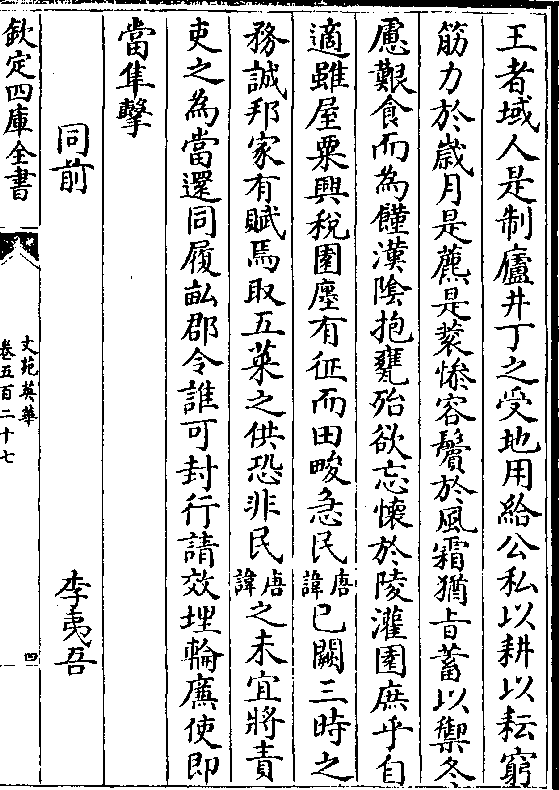 王者域人是制廬井丁之受地用給公私以耕以耘窮
筋力於歲月是藨是蔉慘容鬢於風霜猶旨蓄以禦冬
慮艱食而為饉漢陰抱甕殆欲忘懷於陵灌園庶乎自
適雖屋粟興稅園廛有征而田畯急民唐諱已闕三時之
務誠邦家有賦焉取五菜之供恐非民唐諱之未宜將責
吏之為當還同履畝郡令誰可封行請效埋輪廉使即
當隼擊
同前 李夷吾
欽定四庫全書
文苑英華
卷五百二十七
四